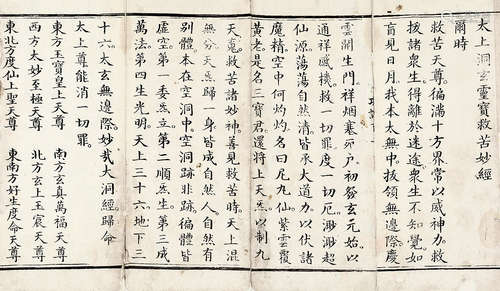 太上洞玄靈寶救苦妙經
爾時
救苦天尊徧滿十方界常以威神力救
拔諸衆生得離於迷途衆生不知覺如
盲見日月我本太無中拔領無邊際慶
雲開生門祥烟塞死户初發玄元始以
通祥感機救一切罪度一切厄渺渺超
仙源蕩蕩自然清皆承大道力以伏諸
魔精空中何灼灼名曰尼丸仙紫雲覆
黃老是名三寶君還將上天炁以制九
天魂救苦諸妙神善見救苦時天上混
無分天炁歸一身皆成自然人自然有
別體本在空洞中空洞跡非跡徧體皆
虛空第一委炁立第二順炁生第三成
萬法第四生光明天上三十六地下三
十六太玄無邊際妙哉大洞經歸命
太上尊能消一切罪
東方玉寶皇上天尊　南方玄真萬福天尊
西方太妙至極天尊　北方玄上玉宸天尊
東北方度仙上聖天尊　東南方好生度命天尊